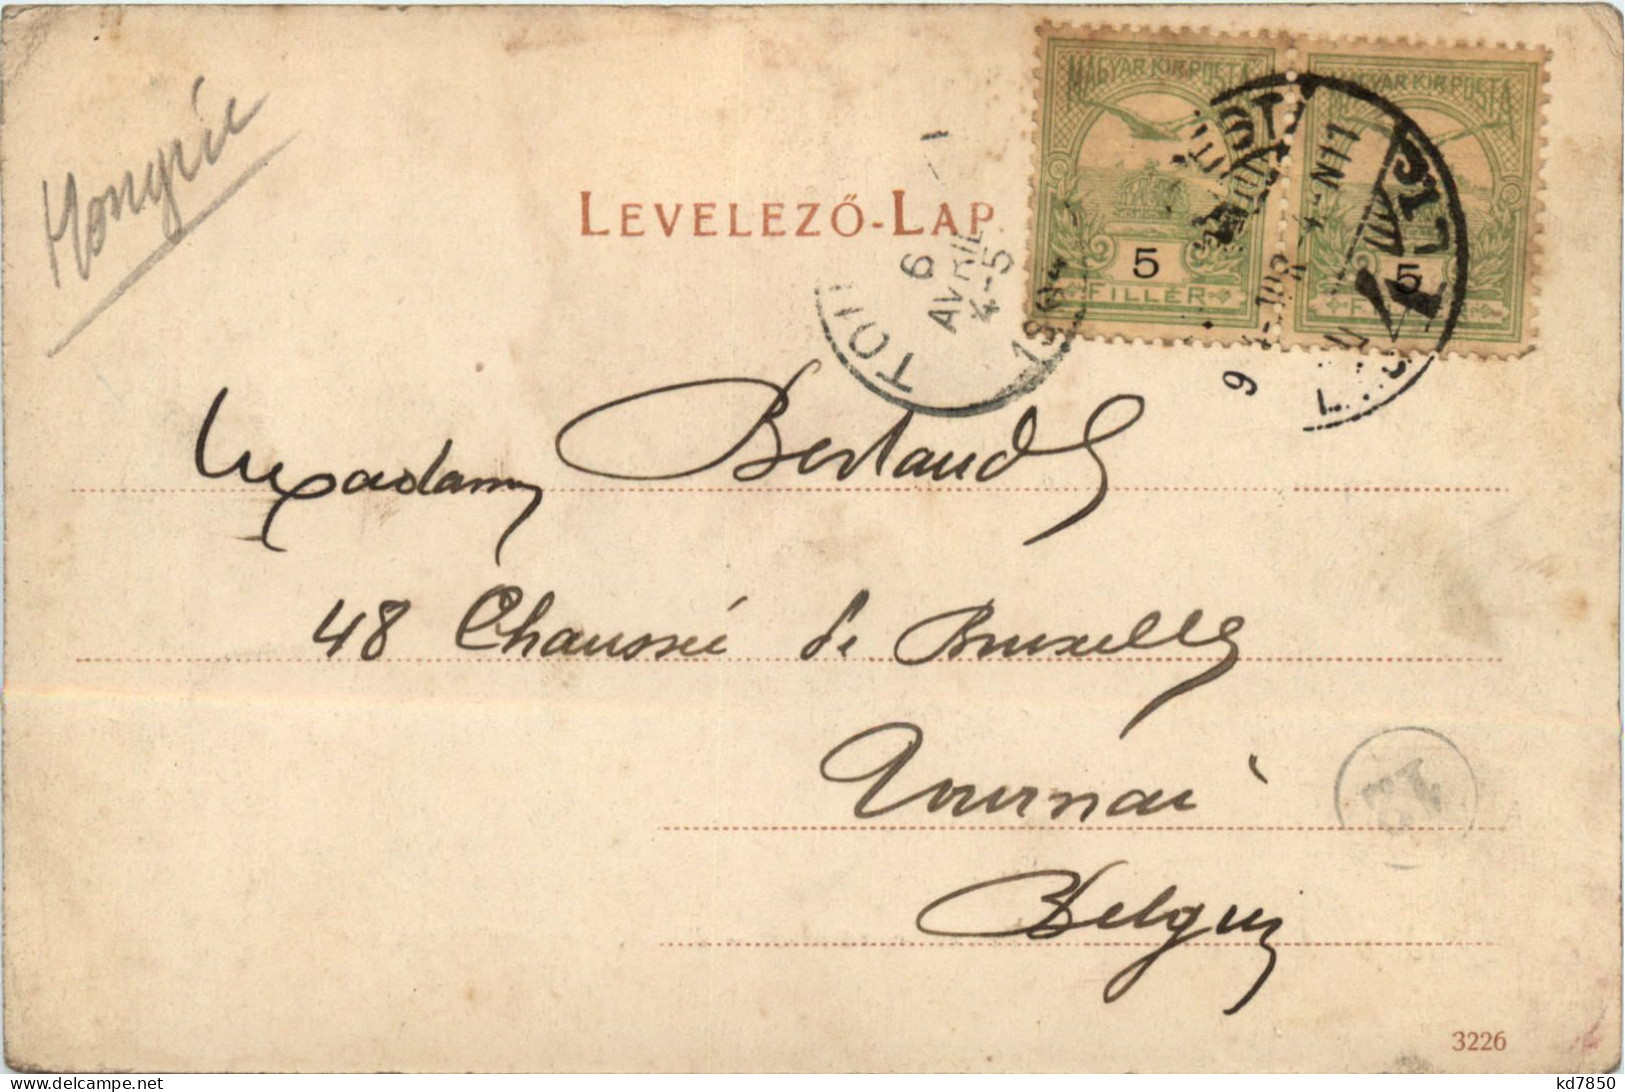 Hongrie
MAGYAR KIR. POSTA
MAGYAR KIR. POSTA
LEVELEZŐ-LAP
5
FILLÉR
5
6
AVRIL
4-5
TOU
Madame Bertaud
48 Chaussée de Bruxelles
Tournai
Belgique
3226
kd7850